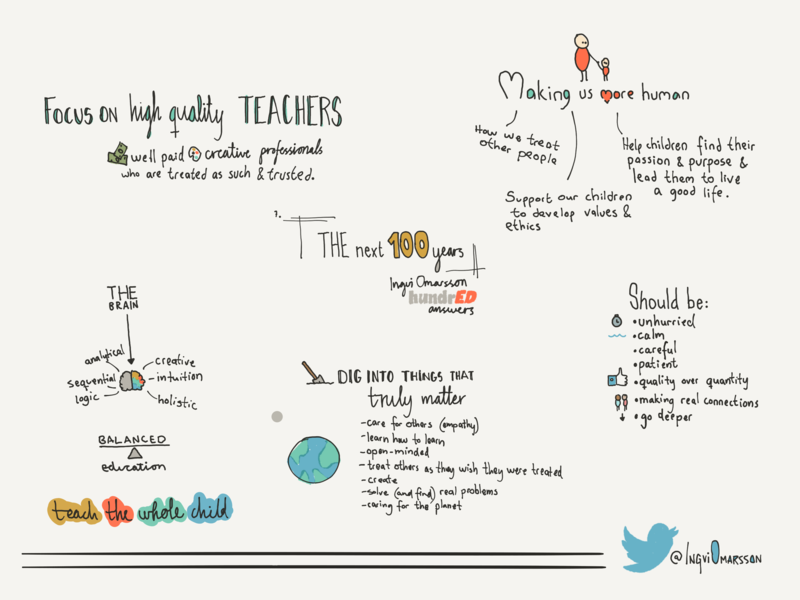 FOCUS ON high quality TEACHERS
well paid & creative professionals
who are treated as such & trusted.
Making us more human
How we treat
other people
Support our children
to develop values &
ethics
Help children find their
passion & purpose &
lead them to live
a good life.
THE next 100 years
Ingvi Omarsson
hundrED
answers
THE
BRAIN
analytical
sequential
logic
creative
intuition
holistic
BALANCED
education
teach the whole child
DIG INTO THINGS THAT
truly matter
-care for others (empathy)
-learn how to learn
-open-minded
-treat others as they wish they were treated
-create
-solve (and find) real problems
-caring for the planet
Should be:
•unhurried
•calm
•careful
•patient
•quality over quantity
•making real connections
•go deeper
@INGVIOMARSSON